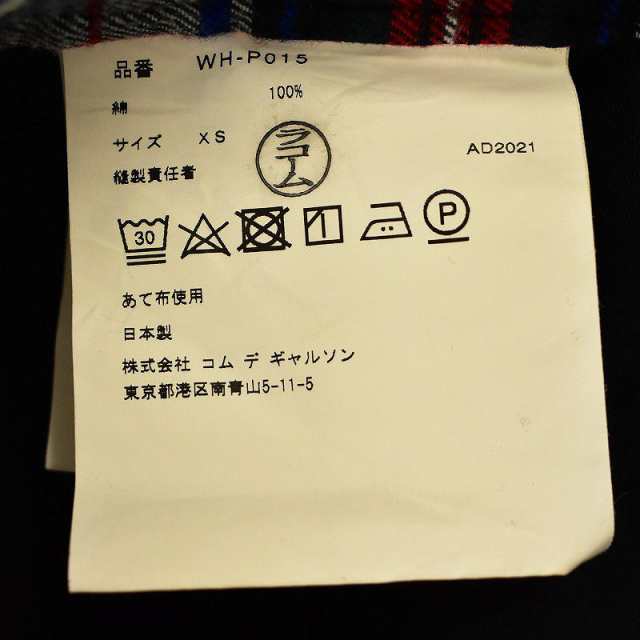 品番 WH-P015
綿 100%
サイズ XS
ラコーム
AD2021
縫製責任者
30
P
あて布使用
日本製
株式会社 コム デ ギャルソン
東京都港区南青山5-11-5